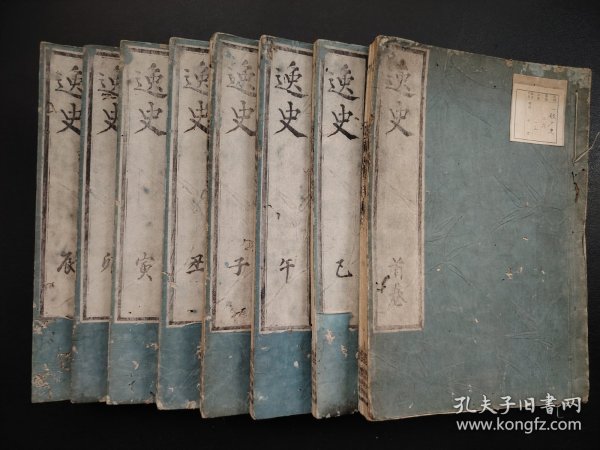 逸史
首卷
逸史
巳
逸史
午
逸史
子
逸史
丑
逸史
寅
逸史
卯
逸史
辰
孔夫子旧书网
www.kongfz.com